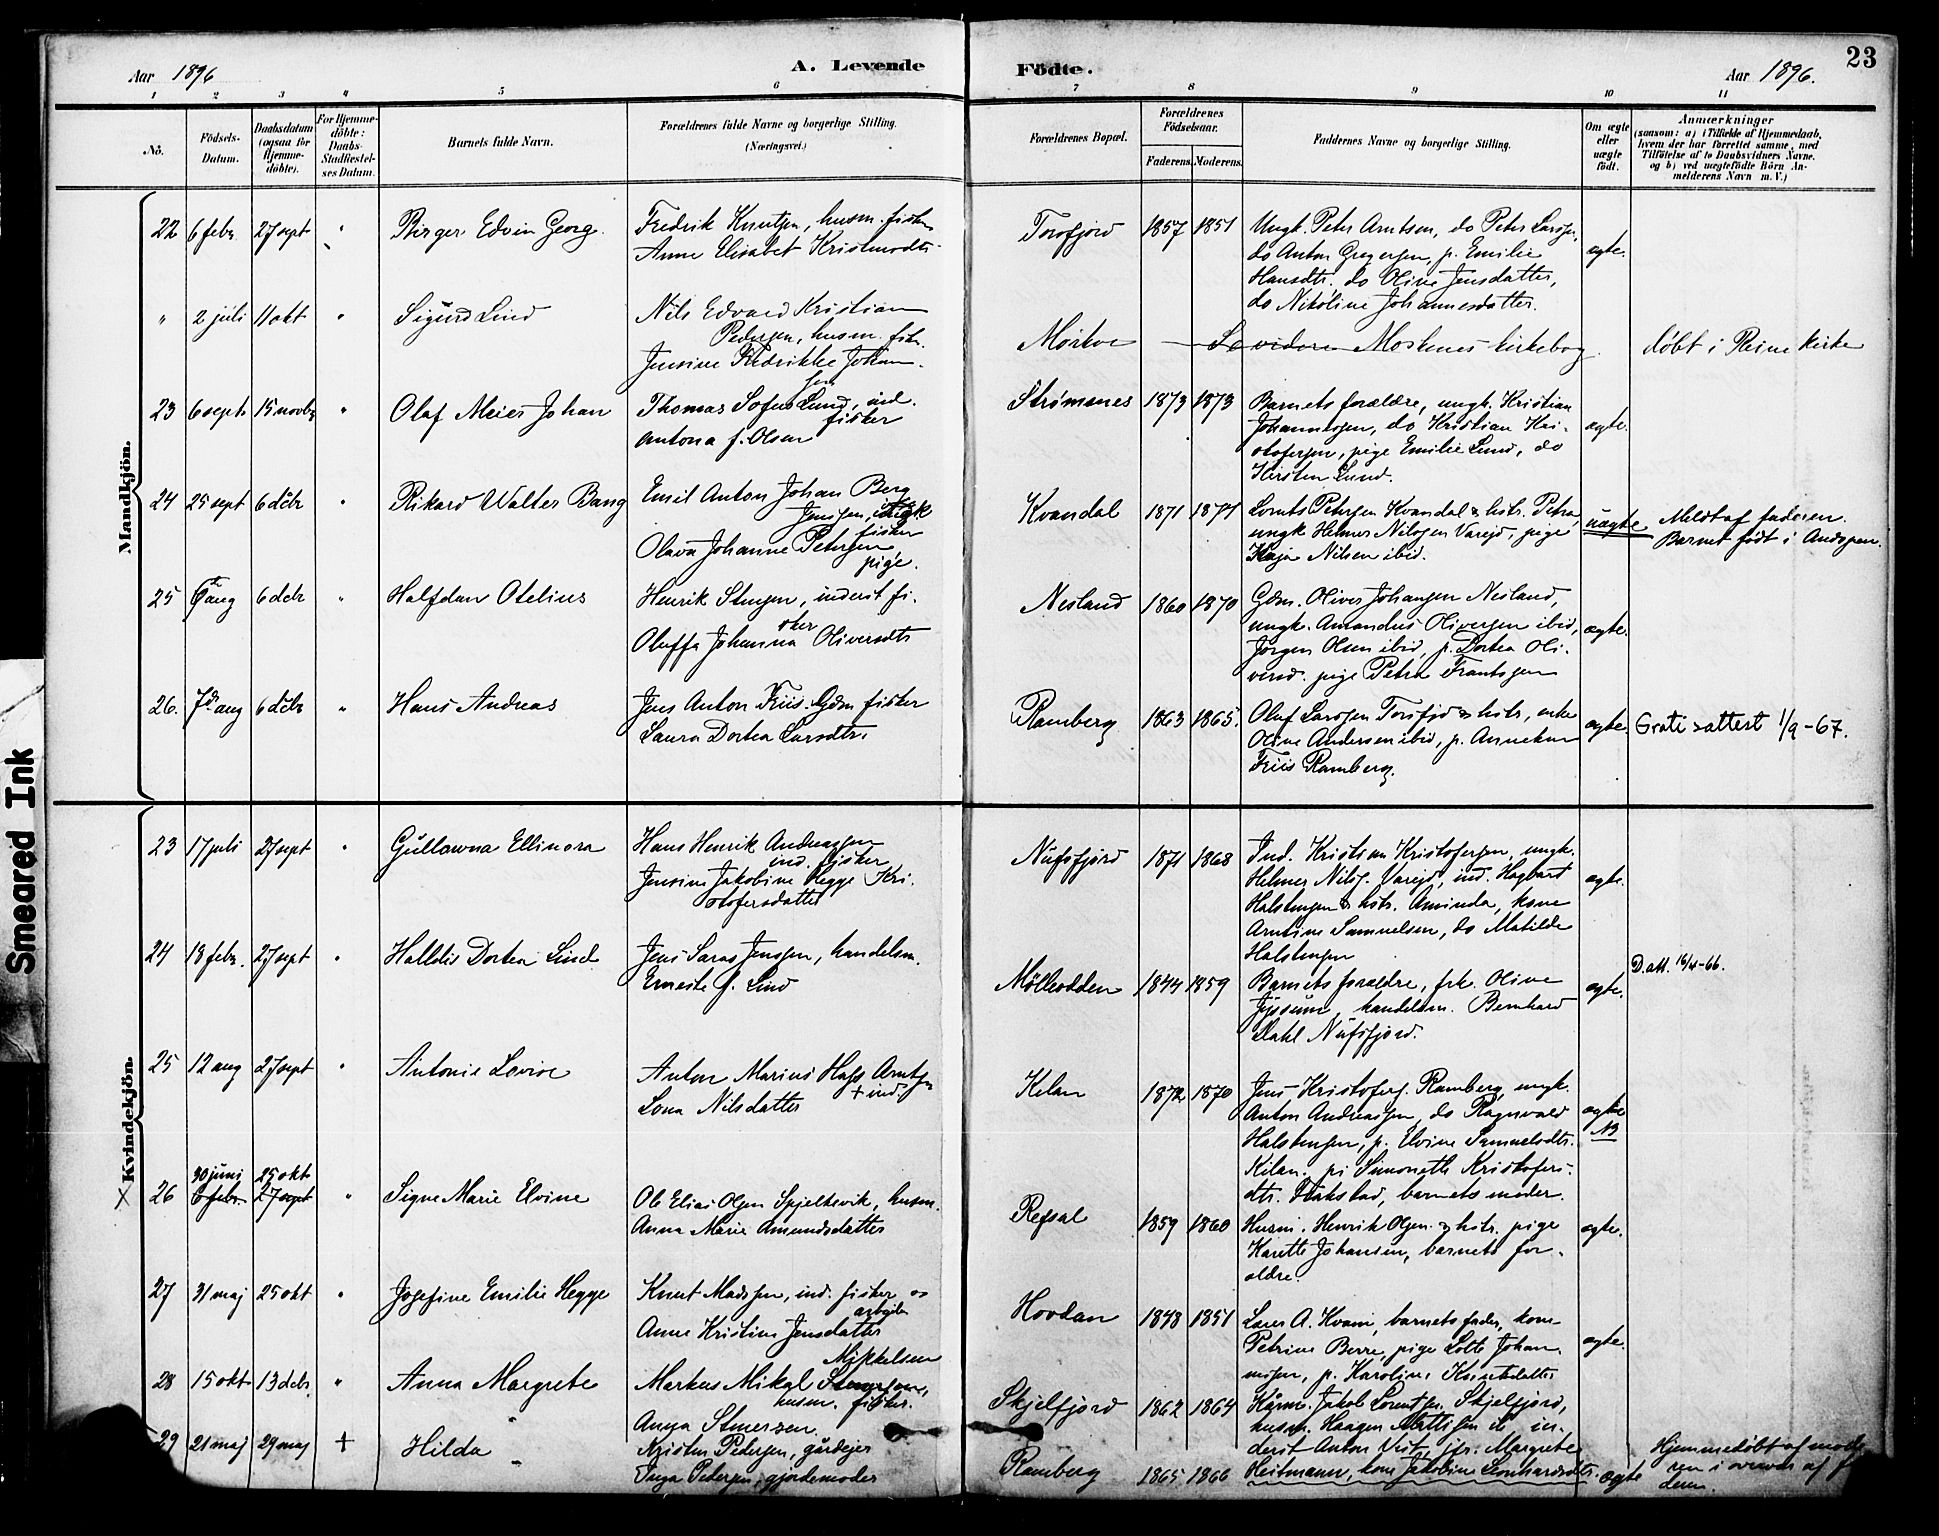 23
Aar 1896
A. Levende
Födte.
Aar 1896.
1 2 3 4 5 6 7 8 9 10 11
No.
Födsels-
Datum.
Daabsdatum
(ogsaa for
Hjemme-
döbte).
For Hjemme-
döbte:
Daabs-
Stadfæstel-
ses Datum.
Barnets fulde Navn.
Forældrenes fulde Navne og borgerlige Stilling.
(Næringsvei.)
Forældrenes Bopæl.
Forældrenes
Födselsaar.
Faderens. Moderens.
Faddernes Navne og borgerlig Stilling.
Om ægte
eller
uægte
födt.
Anmærkninger
(saasom: a) i Tilfælde af Hjemmedaab,
hvem der har forrettet samme, med
Tilföielse af to Daabsvidners Navne,
og b) ved uægtefödte Börn An-
melderens Navn m. V.)
Mandkjön.
22 6 febr 27 sept " Birger Edvin Georg.
Fredrik Knutsen, husm. fisker
Anne Elisabet Kristmodtr
Torsfjord 1857 1851
Ungk. Peter Arntsen, do Peter Larsen,
do Anton Gregersen, p. Emilie
Hansdtr, do Oline Jensdatter,
do Nikoline Johannesdatter.
ægte.
" 2 juli 11 okt " Sigurd Lind
Nils Edvard Kristian
Pedersen, husm. fisk.
Jensine Fredrikke Johan-
sen
Se videre Moskenes kirkebog.
døbt i Reine kirke
23 6 sept 15 novbr " Olaf Meier Johan
Thomas Sofus Lund, ind.
fisker
Antona f. Olsen
Strømanes 1873 1873
Barnets forældre, ungk. Kristian
Johannesen, do Kristian Kri-
stofersen, pige Emilie Lund, do
Kirsten Lund.
ægte.
24 25 sept 6 dcbr " Rikard Walter Bang
Emil Anton Johan Berg
Jensen, ungk
fisker
Olava Johanne Petersen
pige.
Kvandal 1871 1877
Lornts Petersen Kvandal & hstr. Petra,
ungk Helmer Nilssen Varejd, pige
Kaja Nilsen ibid.
uægte
Meldt af faderen.
Barnet født i Andopen.
25 aug 6 dcbr " Halfdan Otelius
Henrik Stensen, inderst fi-
sker
Oluffa Johanna Oliversdtr
Nesland 1860 1870
Gdm. Oliver Johansen Nesland,
ungk. Amandus Oliversen ibid,
Jørgen Olsen ibid, p. Dortea Oli-
versd. pige Petra Frantsen
ægte.
26. 7 aug 6 dcbr " Hans Andreas
Jens Anton Friis. Gdm fisker
Laura Dortea Larsdtr.
Ramberg 1863 1865.
Oluf Larssen Torsfjd & hstr, enke
Oline Andersen ibid, p. Anneken
Friis Ramberg.
ægte.
Gratisattest 1/9-67.
Kvindekjön.
23 17 juli 27 sept " Gullowna Ellinora
Hans Henrik Andreassen
ind. fisker
Jensine Jakobine Hegge Kri-
stofersdatter
Nufsfjord 1871 1868
Ind. Kristian Kristofersen, ungk.
Helmer Nilss. Varejd, ind. Hagbart
Halstensen & hstr. Aminda, kone
Arntine Samuelsen, do Matilde
Halstensen
ægte.
24 18 febr. 27 sept " Halldis Dortea Lind
Jens Saras Jenssen, handelsm.
Erneste f. Lind
Mølleodden 1844 1859
Barnets forældre, frk. Oline
Jyssum, handelsm. Bernhard
Dahl Nufsfjord.
ægte.
D.att. 16/4-66.
25 12 aug 27 sept " Antonie Lovise
Anton Marius Hass Arntsen
+ ind.
Lona Nilsdatter
Kilan 1872 1870
Jens Kristofers. Ramberg, ungk.
Anton Andreassen, do Ragnvald
Halstensen, p. Elvine Samuelsdtr.
Kilan. pi Simonette Kristofers-
dtr. Flakstad, barnets moder.
ægte
NB
26 30 juni 25 okt
6 febr. 27 sept " Signe Marie Elvine
Ole Elias Olsen Spjelkevik, husm.
Anna Marie Amundsdatter
Refsal 1859 1860
Husm. Henrik Olsen & hstr. pige
Karette Johansen, barnets for-
ældre.
ægte.
27 31 maj 25 okt " Josefine Emilie Hegge
Knut Madssen, ind. fisker og
arbejder
Anne Kristine Jensdatter
Hovdan 1848 1851
Lars A. Kvam, barnets fader, kone
Petrine Berre, pige Lotte Johan-
nesen, p. Karoline Knutsdatter
ægte.
28 15 okt 13 dcbr " Anna Margrete
Mikkelsen
Markus Mikal
husm. fisker.
Anna Stenersen.
Skjelfjord 1862 1864
Kårm. Jakob Lorentsen Skjelfjord,
husm. Haagen Mattissen do in-
derst Anton Vist, jfr. Margrete
Heitmann, kone Jakobine Leonhardsdtr.
29 21 maj 29 maj + Hilda
Pedersen, gårdejer
Inga Pedersen, gjordemoder
Ramberg 1865 1866
ægte
Hjemmedøbt af mode-
ren i overvær af fa
deren.
Smeared Ink